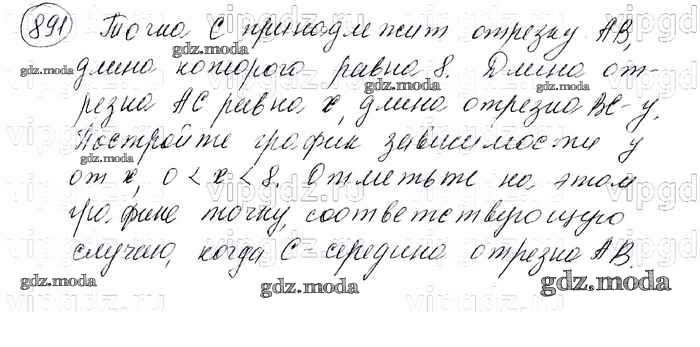 891 Точка C принадлежит отрезку AB,
длина которого равна 8. Длина от-
резка AC равна x, длина отрезка BC - y.
Постройте график зависимости y
от x, 0 < x < 8. Отметьте на этом
графике точку, соответствующую
случаю, когда C середина отрезка AB.
gdz.moda
gdz.moda
gdz.moda
gdz.moda
gdz.moda
gdz.moda
gdz.moda
gdz.moda